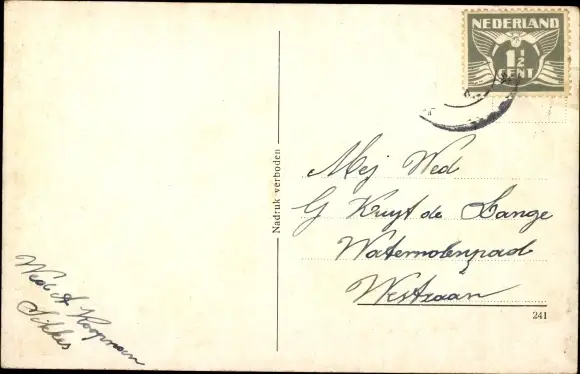 NEDERLAND
1½
CENT
Nadruk verboden
Mej Wed
G Kruyt de Lange
Watermolenpad
Westzaan
Wed A Koopman
Sikkes
241